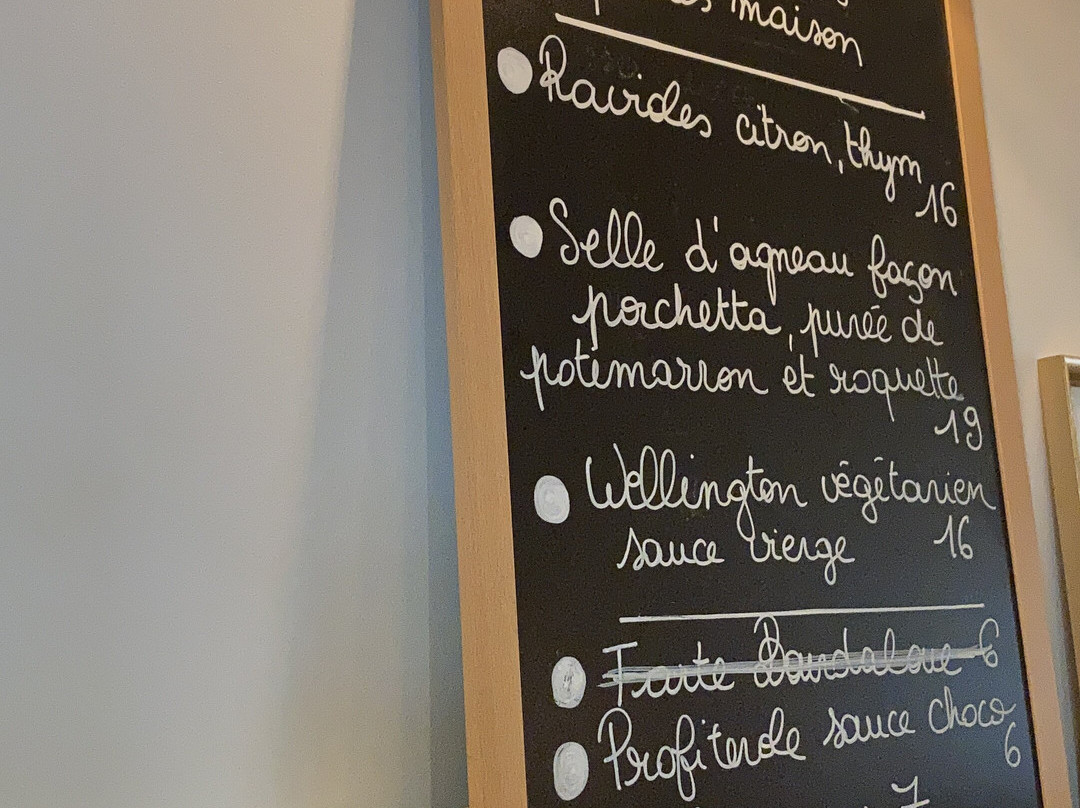 maison
Ravioles citron, thym
16
Selle d'agneau façon
porchetta, purée de
potimarron et roquette
19
Wellington végétarien
sauce vierge 16
Tarte Bourdaloue 6
Profiterole sauce choco
6
7